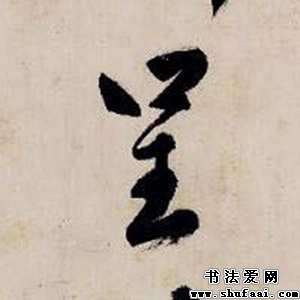 呈
书法爱网
www.shufaai.com